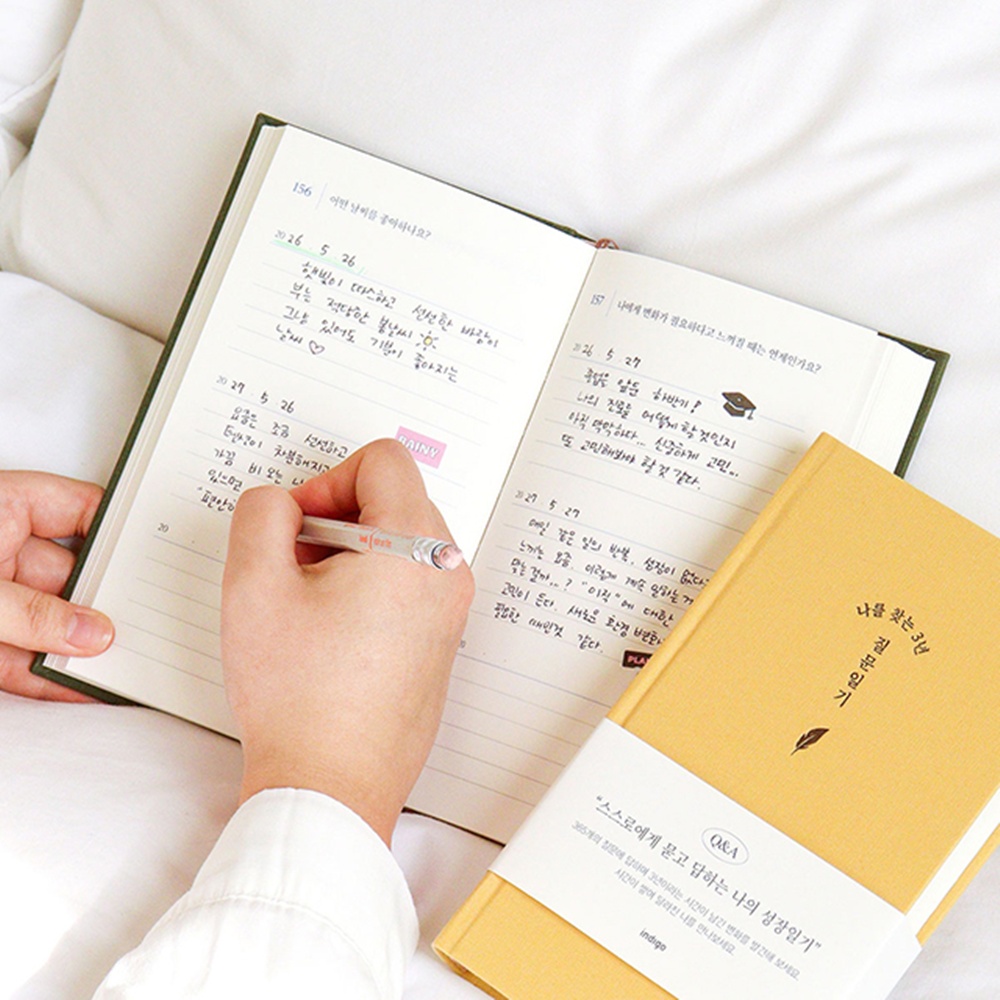 156 어떤 날씨를 좋아하나요?
2026 5 26
햇빛이 따스하고 선선한 바람이
부는 적당한 봄날씨
그냥 있어도 기분이 좋아지는
날씨 ♡
2027 5 26
요즘은 조금 선선하고
차분해지고
가끔 비 오는
있으면
RAINY
20
157 나에게 변화가 필요하다고 느껴질 때는 언제인가요?
2026 5 27
졸업을 앞둔 하반기!
나의 진로를 어떻게 할 것인지
아직 막막하다... 신중하게 고민...
또 고민해봐야 할 것 같다.
2027 5 27
매일 같은 일의 반복, 성장이 없다
느끼는 요즘, 이렇게 계속 일하는 게
맞는걸까...? "이직"에 대한
고민이 든다. 새로운 환경 변화
필요한 때인것 같다.
나를 찾는 3년
질문일기
Q&A
"스스로에게 묻고 답하는 나의 성장일기"
365개의 질문에 답하며 3년이라는 시간이 남긴 변화를 발견해 보세요.
시간이 쌓여 달라진 나를 만나보세요.
indigo